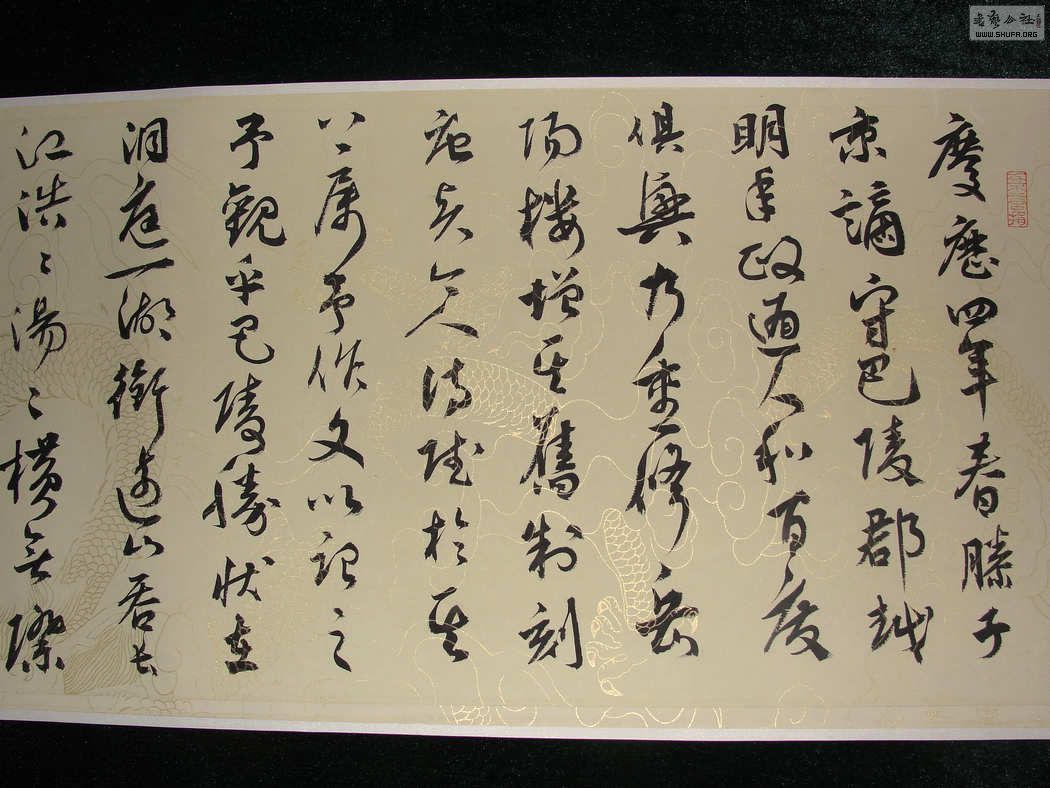 慶歷四年春滕子
京謫守巴陵郡越
明年政通人和百廢
俱興乃重修岳
陽樓增其舊制刻
唐賢今人詩賦於其
上屬予作文以記之
予觀乎巴陵勝狀在
洞庭一湖銜遠山吞長
江浩〻湯〻橫無際
书艺公社
WWW.SHUFA.ORG